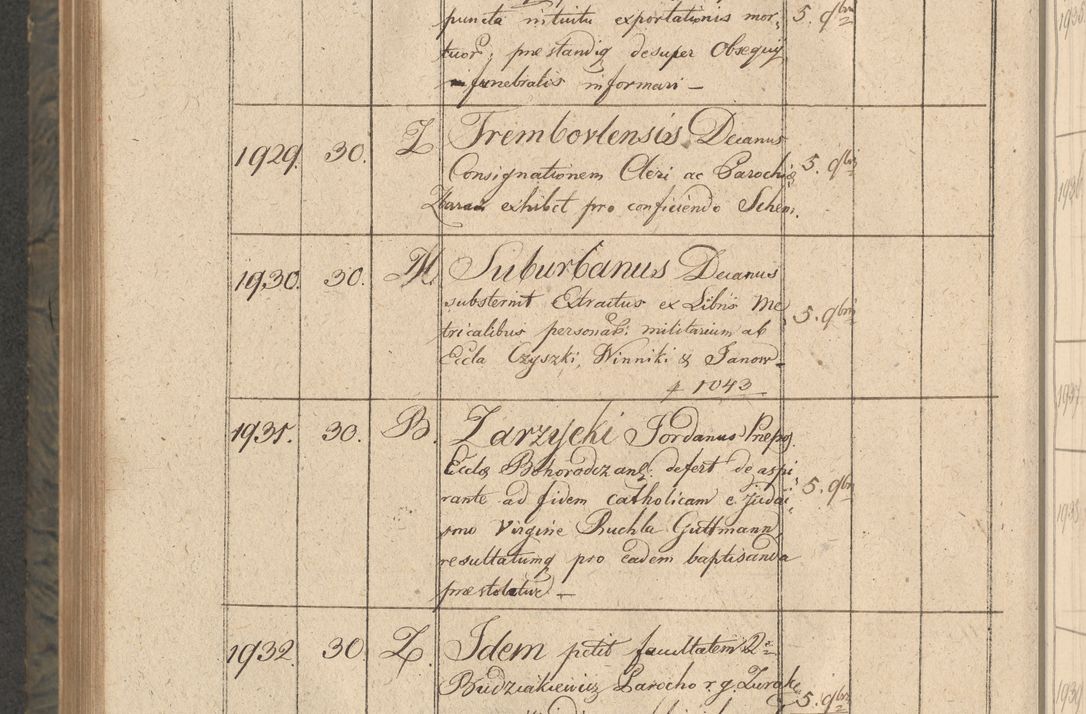 puncta intuitu exportationis mor, 5. 9br
tuor; præstandiq desuper Obsequij
funebralis informari —
1929. 30. Z Trembovlensis Decanus
Consignationem Cleri ac Parochiæ 5. 9bri
exhibet pro conficiendo Schem.
1930. 30. M. Suburbanus Decanus
substernit Extractus ex Libris Me 5. 9bri
tricalibus personal: militarium ab
Eccla Czyszki, Winniki & Janow —
1043
1931. 30. B. Zarzycki Jordanus Præpo.
Ecclæ Bohorodczan: defert de aspi
rante ad fidem catholicam e Judai 5. 9br
smo Virgine Ruchla Guttmann
resultatumq pro eadem baptisanda
præstolatur —
1932. 30. Z. Idem petit facultatem
Budziakiewicz Parocho r. g. Zurake
5. 9bri